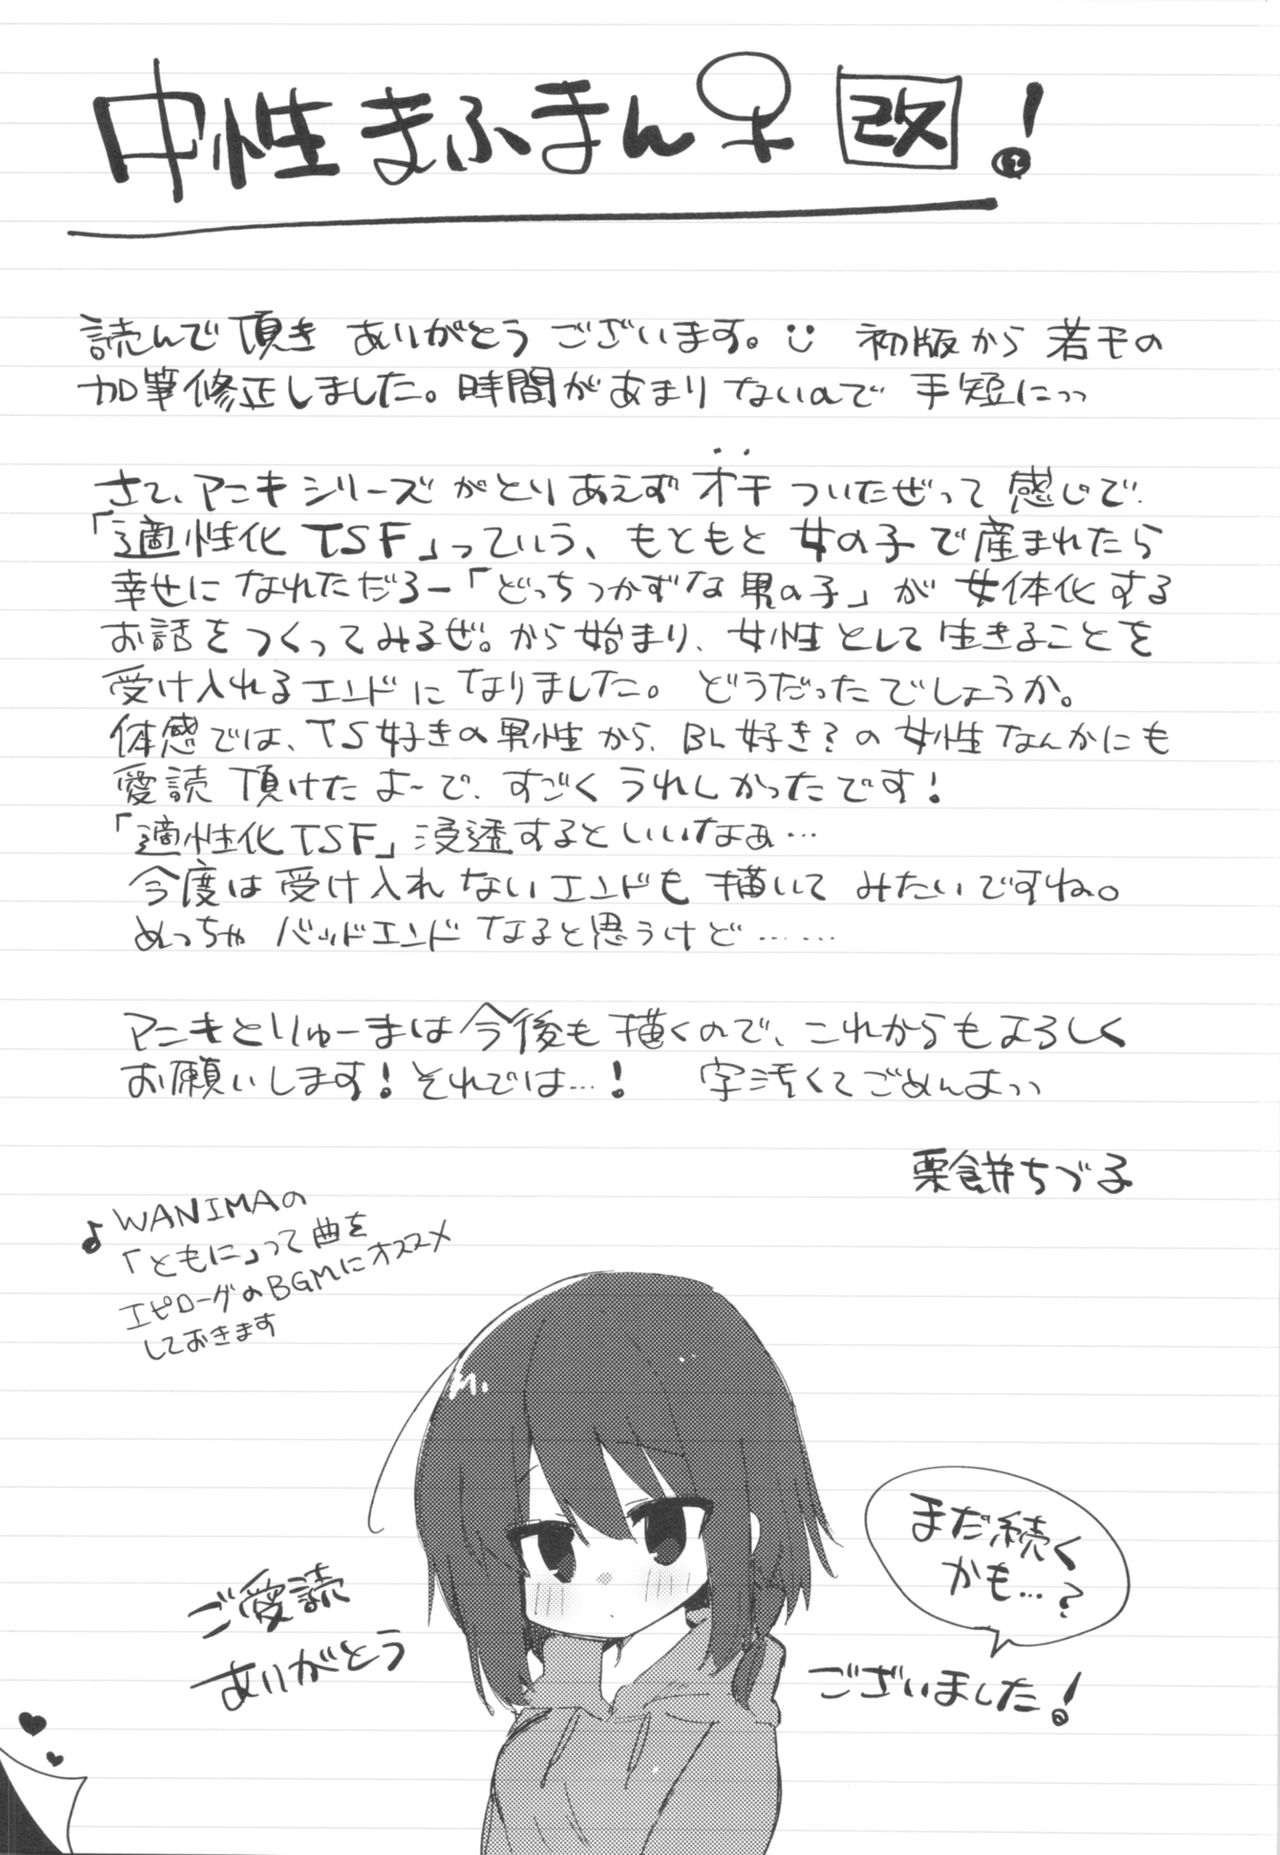 中性まふまん♀ 改！
読んで頂き ありがとうございます。 初版から 若干の
加筆修正しました。時間があまりないので 手短にっっ
さて、アニキシリーズがとりあえずオチついたぜって感じで、
「適性化TSF」っていう、もともと女の子で産まれたら
幸せになれただろー「どっちつかずな男の子」が女体化する
お話をつくってみるぜ。から始まり、女性として生きることを
受け入れるエンドになりました。どうだったでしょうか。
体感では、TS好きの男性から、BL好き？の女性なんかにも
愛読頂けたよーで、すごくうれしかったです！
「適性化TSF」浸透するといいなぁ…
今度は受け入れないエンドも描いてみたいですね。
めっちゃバッドエンドなると思うけど……
アニキとりゅーまは今後も描くので、これからもよろしく
お願いします！それでは…！ 字汚くてごめんよっっ
栗餅ちづ子
♪WANIMAの
「ともに」って曲を
エピローグのBGMにオススメ
しておきます
まだ続く
かも…？
ご愛読
ありがとう
ございました！